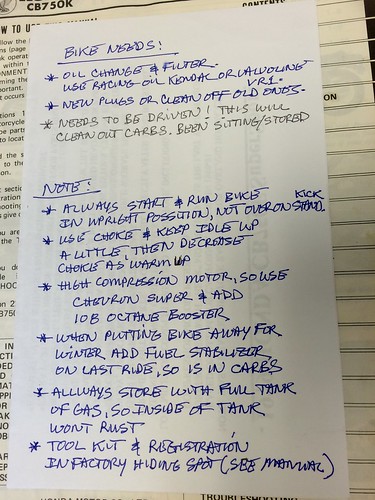 CB750K
CONTENTS
BIKE NEEDS:
* OIL CHANGE & FILTER.
USE RACING OIL KENDAL OR VALVOLINE
VR1.
* NEW PLUGS OR CLEAN OFF OLD ONES.
* NEEDS TO BE DRIVEN! THIS WILL
CLEAN OUT CARBS. BEEN SITTING/STORED
NOTE:
* ALWAYS START & RUN BIKE KICK
IN UPRIGHT POSSITION, NOT OVER ON STAND.
* USE CHOKE & KEEP IDLE UP
A LITTLE, THEN DECREASE
CHOKE AS WARM UP
* HIGH COMPRESSION MOTOR, SO USE
CHEVRON SUPER & ADD
108 OCTANE BOOSTER
* WHEN PUTTING BIKE AWAY FOR
WINTER ADD FUEL STABILIZER
ON LAST RIDE, SO IS IN CARBS
* ALLWAYS STORE WITH FULL TANK
OF GAS, SO INSIDE OF TANK
WONT RUST
* TOOL KIT & REGISTRATION
IN FACTORY HIDING SPOT (SEE MANUAL)
TROUBLESHOOTING